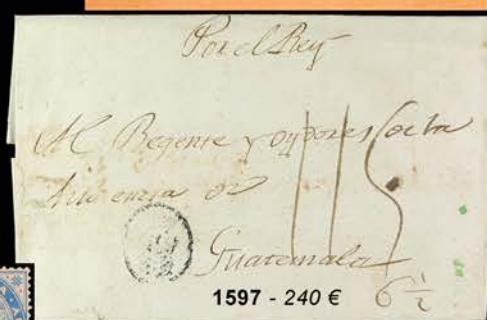 Por el Rey
Al Regente y oydores de la
Audiencia de
Guatemala
1597 - 240 €
6 1/2